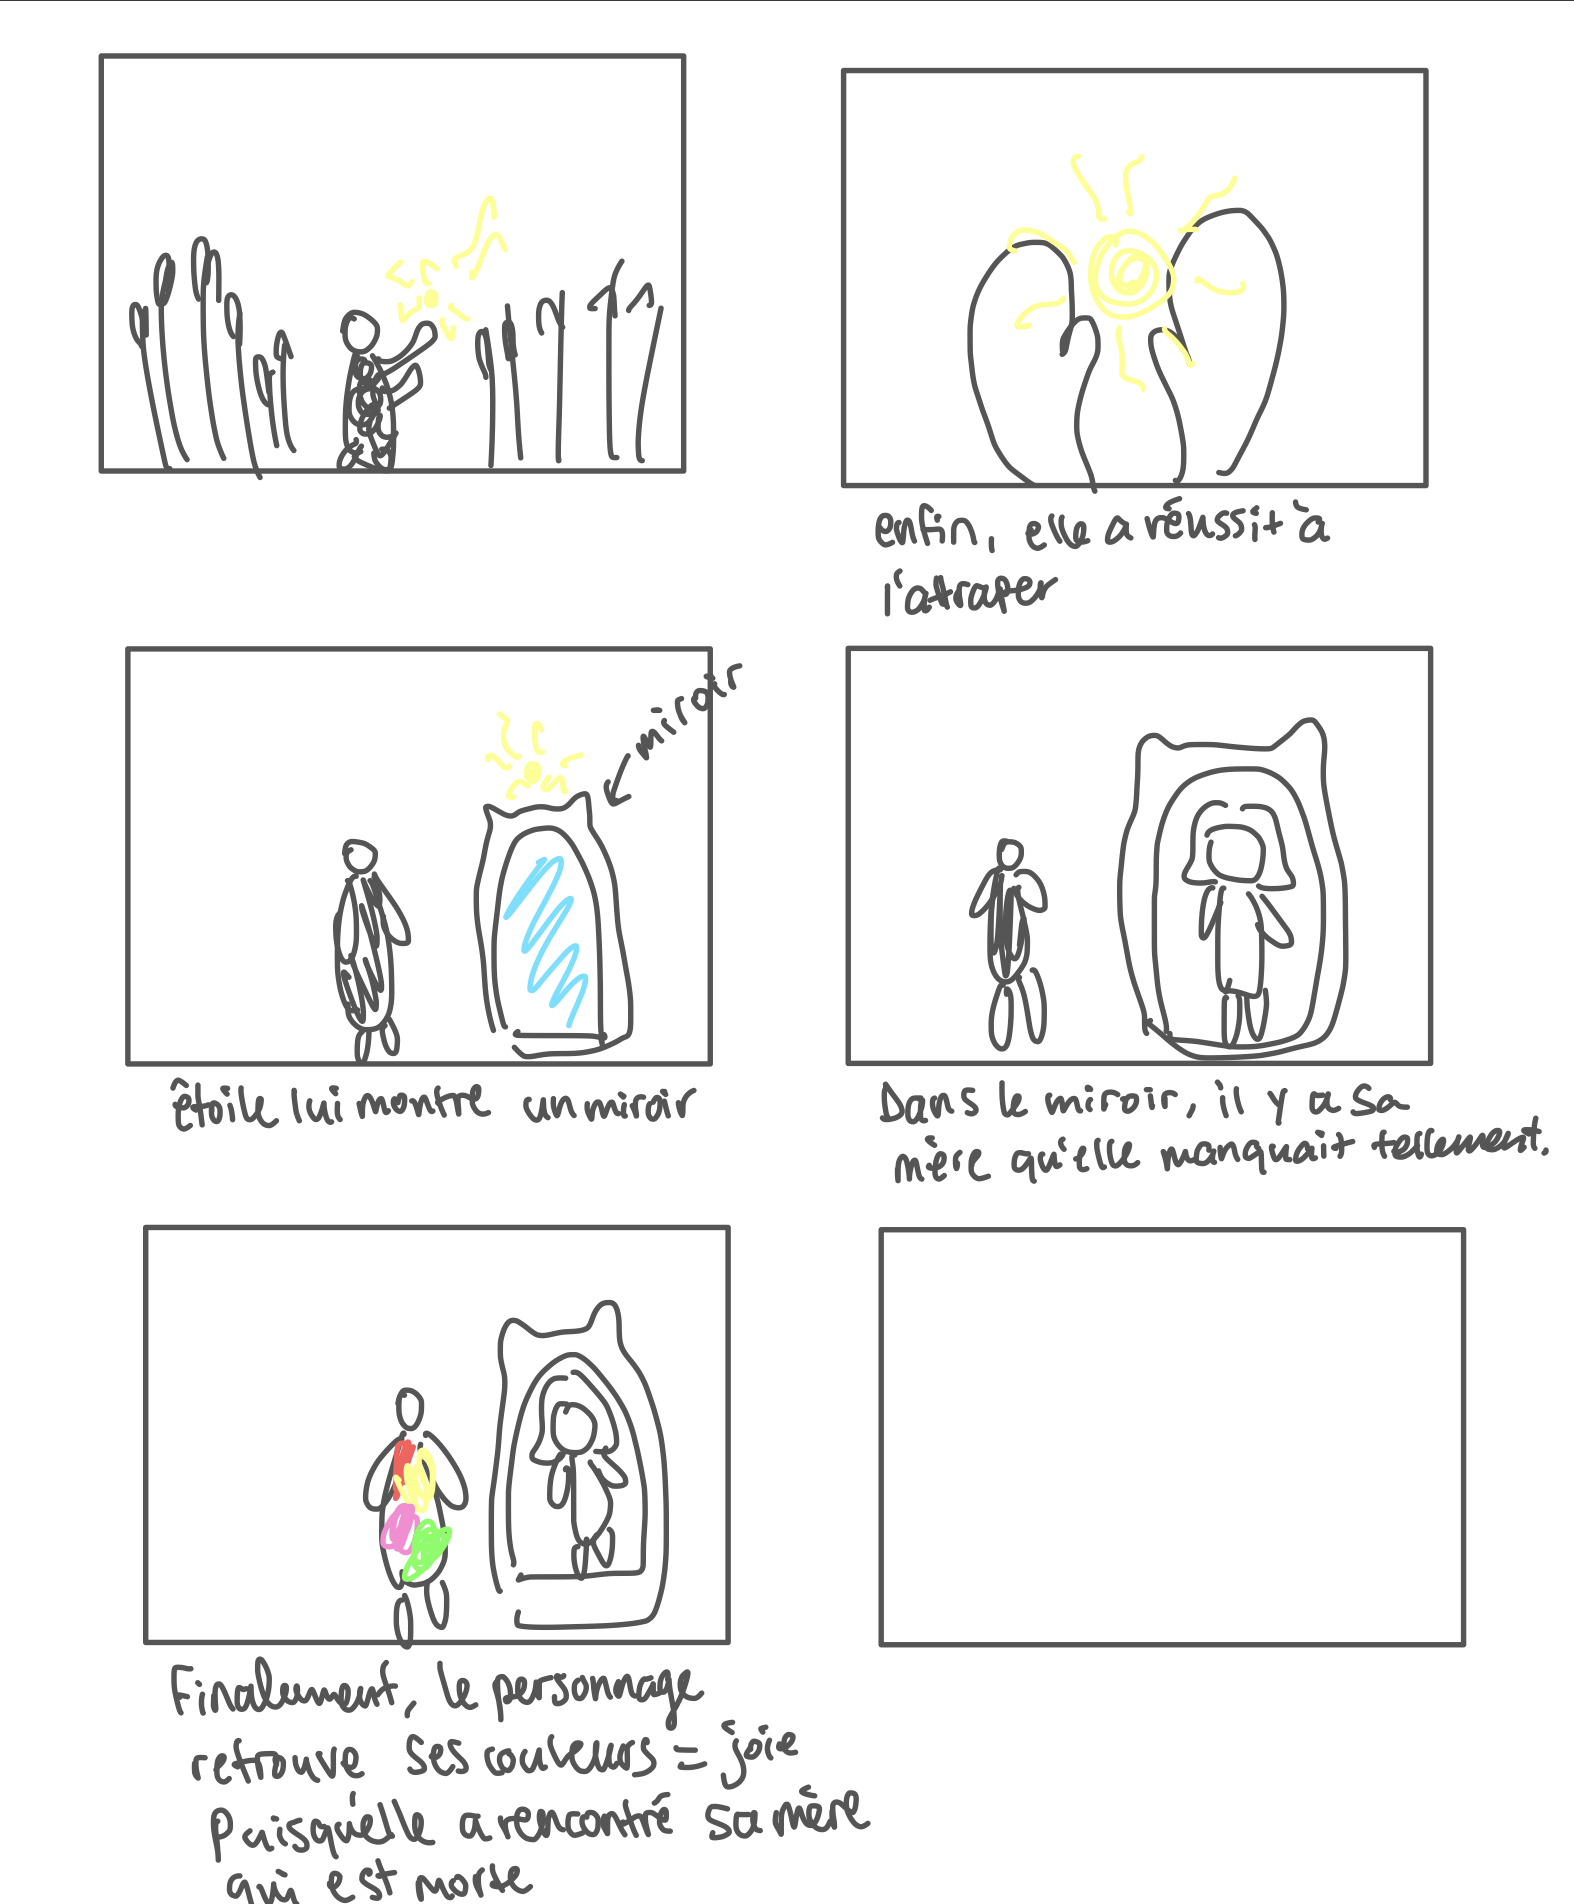 enfin, elle a réussit à
l'atraper
miroir
étoile lui montre un miroir
Dans le miroir, il y a sa
mère qu'elle manquait tellement.
Finalement, le personnage
retrouve ses couleurs = joie
puisqu'elle a rencontré sa mère
qui est morte